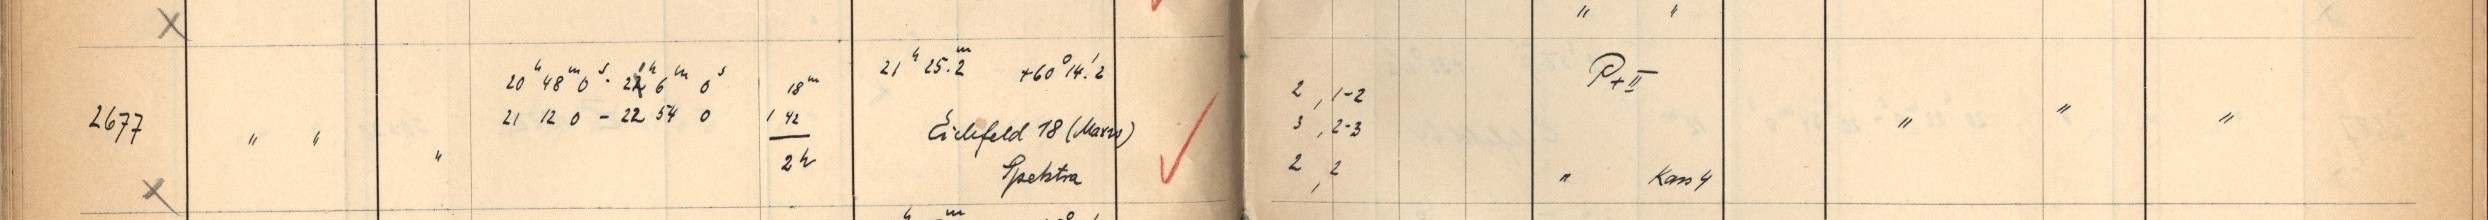 " "
20ʰ 48ᵐ 0ˢ - 21ʰ 6ᵐ 0ˢ 18ᵐ 21ʰ 25.ᵐ2 +60° 14.'2 2, 1-2 P+II
2677 " " " 21 12 0 - 22 54 0 1 42 Eichfeld 18 (Marus) 3, 2-3 " " "
2h Spektra 2, 2 " Kass 4